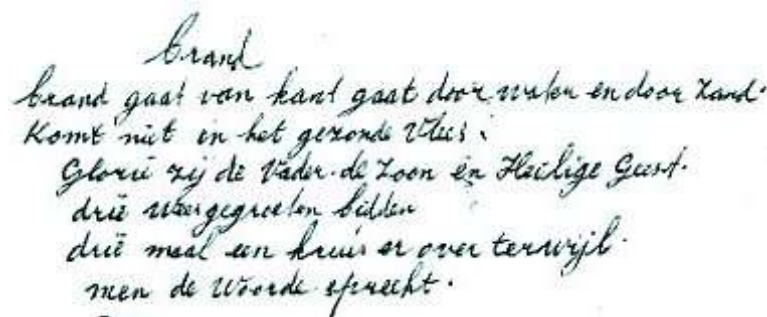 brand
brand gaat van kant gaat door water en door Zand.
Komt niet in het gezonde Vlees.
Glorie zij de Vader de Zoon en Heilige Geest.
drie weesgegroeten bidden
drie maal een kruis er over terwijl
men de Woorde spreekt.